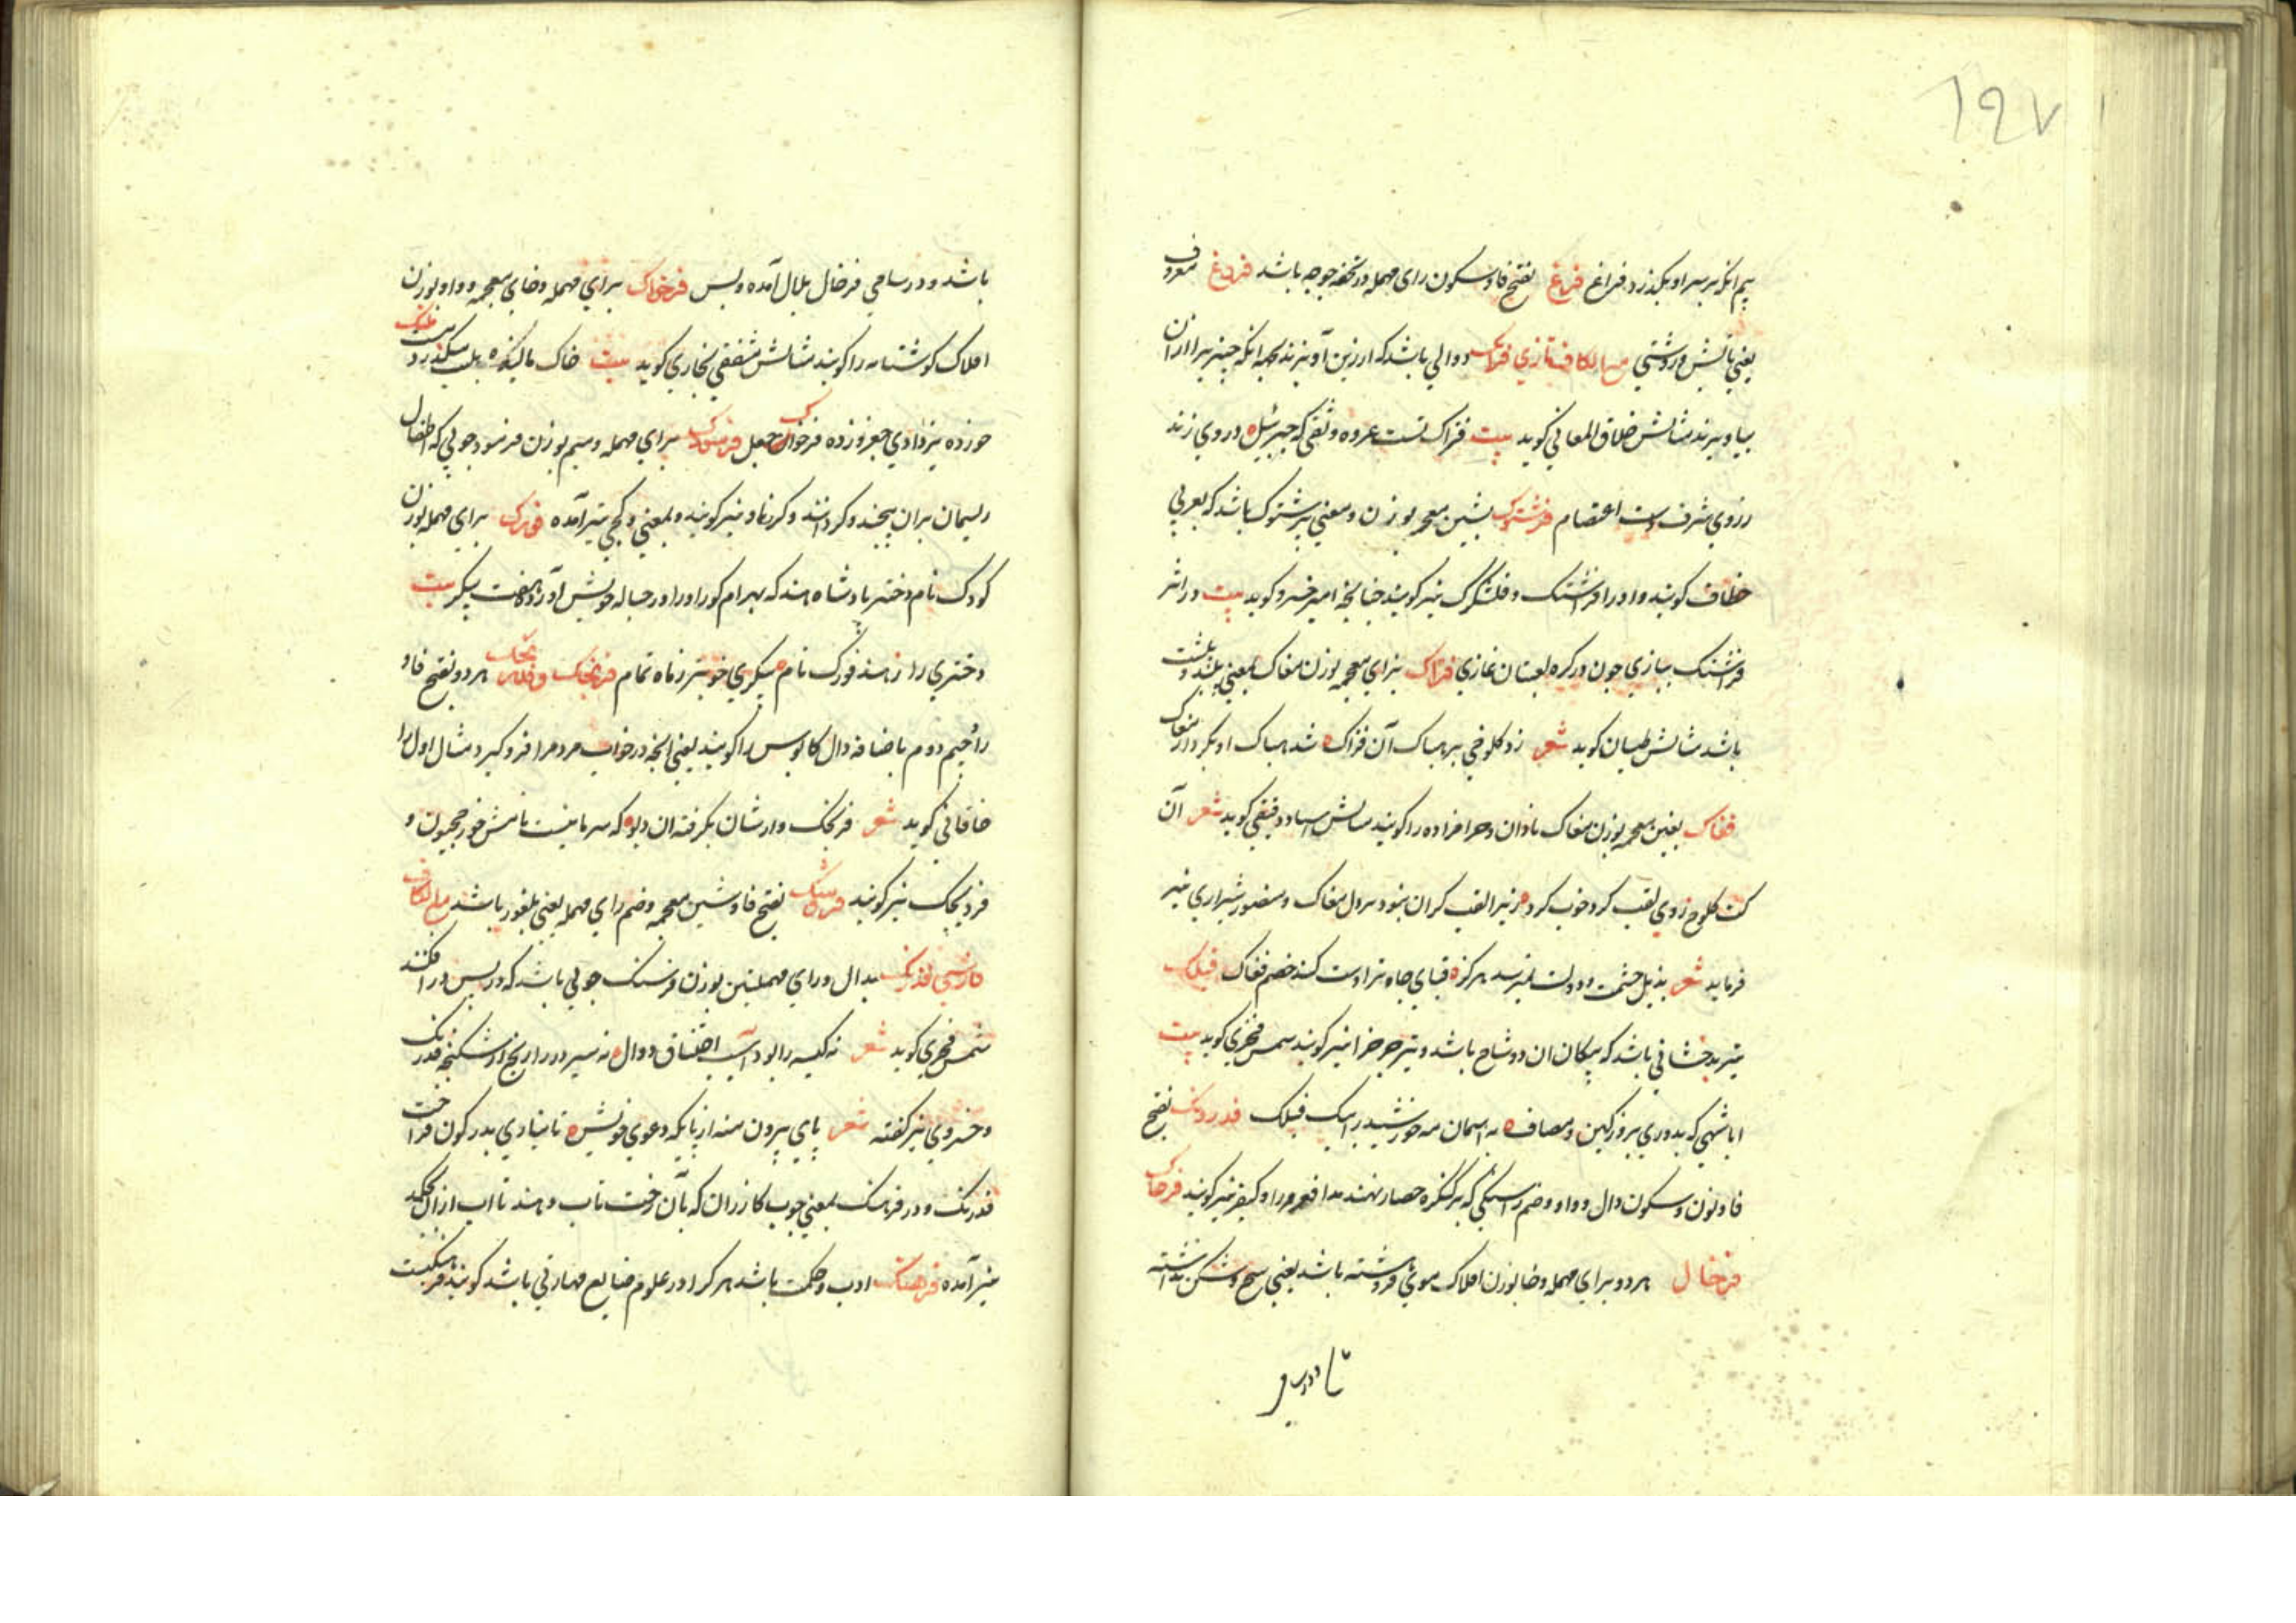 ۱۹۷
بیم آنکه بر سر او بگذرد فراغ فرغ بفتح فا و سکون رای مهمله در تحفه جوجه باشد فروغ معروف
یعنی تابش و روشنی مع الکاف تازی فتراک دوالی باشد که از زین آویزند بجهه آنکه چیزیرا از آن
بیاویزند مثالش خلاق المعانی گوید بیت فتراک تست عروه وثقی که جبرئیل در وی زند
ز روی شرف دست اعتصام فرشتوک بشین معجمه بوزن و معنی پرشتوک باشد که بعربی
خطاف کویند و او را فراشتک و نیز کویند چنانچه امیر خسرو کوید بیت در اثر
فراشتک ببازی چون در کره لعبتان غازی فژاک بزای معجمه بوزن مغاک بمعنی پلید و پلشت
باشد مثالش طیان کوید شعر زد کلوخی بر هباک آن فژاک شد هباک او بکردار مغاک
فغاک بغین معجمه بوزن مغاک نادان و حرامزاده را کویند مثالش استاد دقیقی کوید شعر آن
کت کلوخ روی لقب کرد خوب کرد زیرا لقب کران نبود بر دل فغاک و منصور شیرازی نیز
فرماید شعر بذیل حشمت و دولت نمیرسد هرگز قبای جاه ترا دست کند خصم فغاک فیلک
تیر بدخشانی باشد که پیکان آن دو شاخ باشد و تیر چرخ را نیز کویند شمس فخری کوید بیت
ایا شهی که بدوری بروز کین و مصاف به آسمان مه خورشید را بیک فیلک فدرونک بفتح
فا و نون و سکون دال و واو و ضم را سنکی که بر کنکره حصار نهند مدافعه را و نیز کویند فرخاک
فرخال هر دو برای مهمله و خا بوزن افلاک موی فروهشته باشد یعنی هیچ شکن نداشته
باشد و در سامی فرخال بلال آمده و بس فرخواک برای مهمله و خای معجمه و واو بوزن
افلاک کوشتابه را کویند مثالش منفقی بخاری کوید بیت خاک مالیده
خورده فرموک برای مهمله و میم بوزن فرسود چوبی که اطفال
ریسمان بران پیچند و کردانند و کردنا نیز کویند و بمعنی نیز آمده فورک برای مهمله بوزن
کودک نام دختر پادشاه هند که بهرام کور او را در حباله خویش آورد هفت پیکر بیت
دختری را ز هند فورک نام پیکری خوبتر ز ماه تمام فرنجک و فدرنجک هر دو بفتح فا و
را و جیم دوم باضافه دال کابوس را کویند یعنی آنچه در خواب مردم را فرو گیرد مثال اول را
خاقانی کوید شعر فرنجک وارشان بکرفته آن دیو که سریانیست نامش خورخجیون و
فرنجک نیز کویند فروشک بفتح فا و شین معجمه و ضم رای مهمله یعنی بلغور باشد مع الکاف
فارسی فدرنک بدال و رای مهملتین بوزن فرسنک چوبی باشد که در پس در افکنند
شمس فخری کوید شعر نه کیسه را بود آسیب اختناق دوال نه سیر در را رنج از شکنجه فدرنک
و خسروی نیز کفته شعر پای بیرون منه از پایکه دعوی خویش تا نیاری بدر کون فراخت
فدرنک و در فرهنک بمعنی چوب کازران که بآن رخت تاب دهند تا آب از آن بچکد
نیز آمده فرهنک ادب و حکمت باشد هر که را در علوم صنایع مهارتی باشد کویند